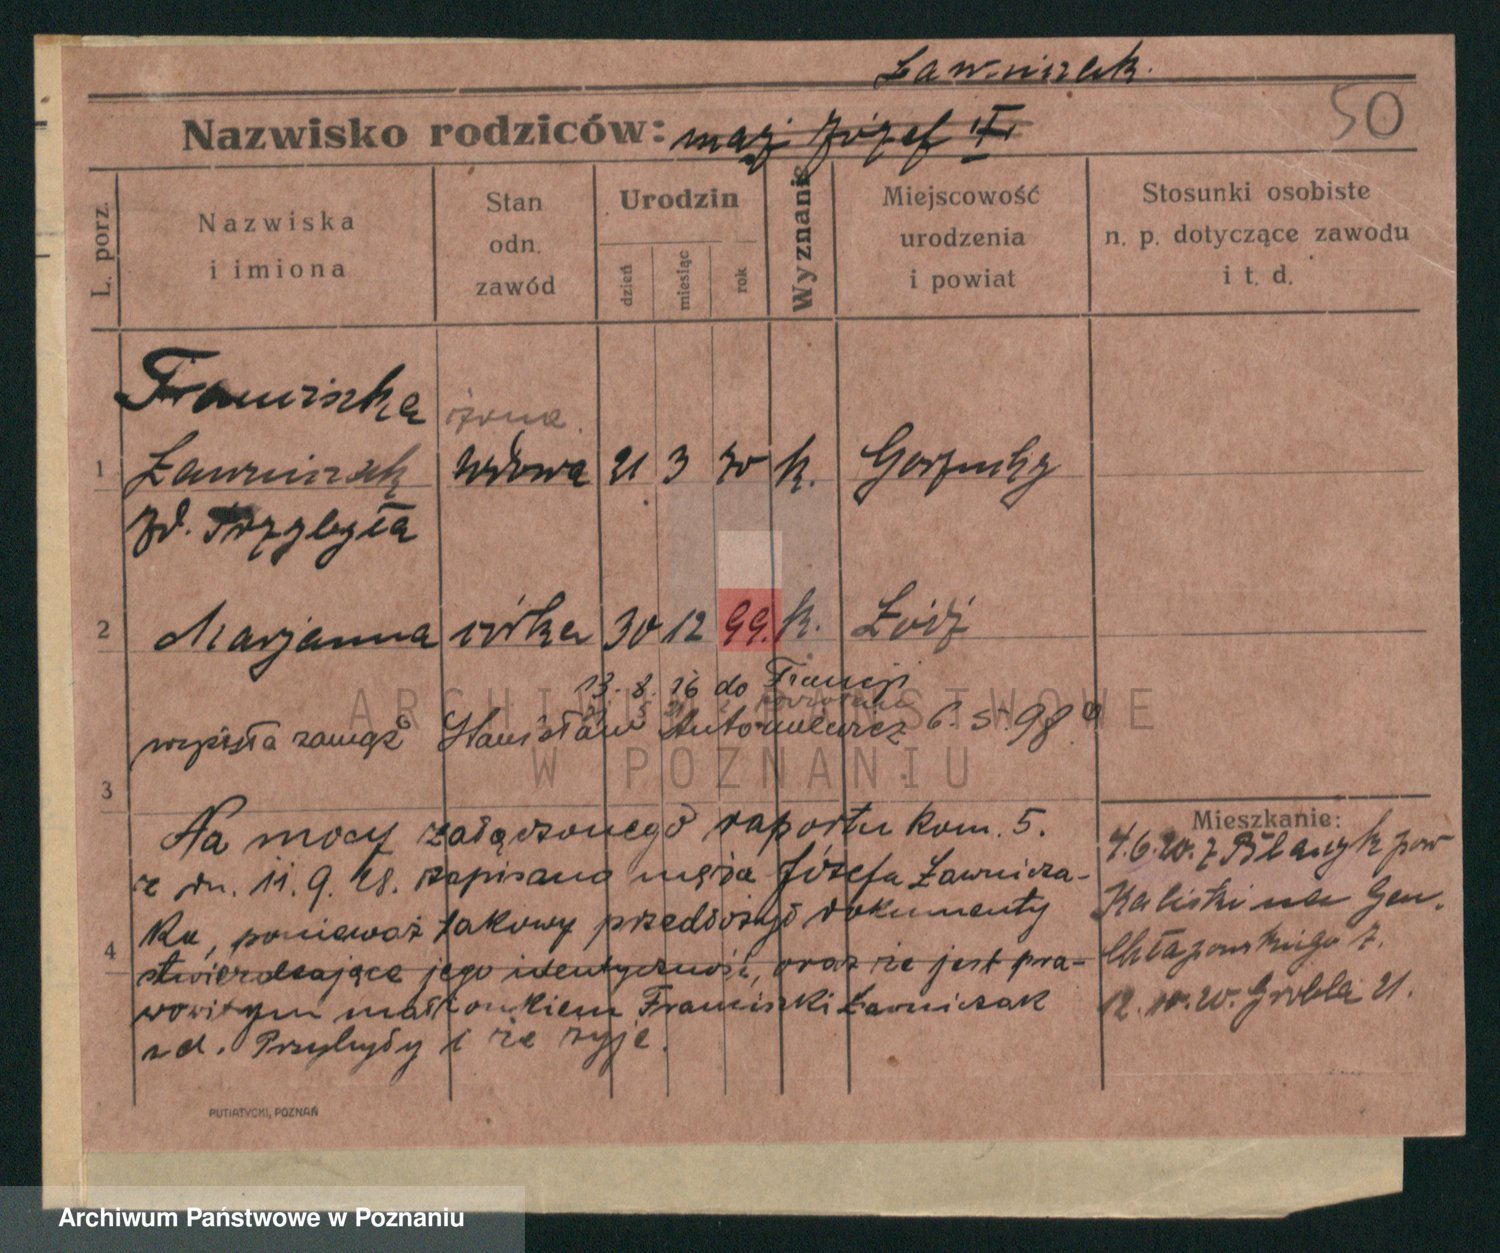 Ławniczak.
50
Nazwisko rodziców: mąż Józef
L. porz.
Nazwiska i imiona
Stan odn. zawód
Urodzin
dzień
miesiąc
rok
Wyznanie
Miejscowość urodzenia i powiat
Stosunki osobiste n. p. dotyczące zawodu i t. d.
Franciszka żona.
1 Ławniczak wdowa 21 3 70 k.
zd. Przybyła
2 Marjanna córka 30 12 99. k. Łódź
13. 8. 26 do Francji
wyszła zamąż Stanisław Antoniewicz 6.5.98
3
Na mocy załączonego raportu kom. 5.
z dn. 11. 9. 28. zapisano męża Józefa Ławnicza-
ka, ponieważ takowy przedłożył dokumenty
4 stwierdzające jego identyczność, oraz że jest pra-
wowitym małżonkiem Franciszki Ławniczak
zd. Przybyły i że żyje.
Mieszkanie:
4.6.20. z pow
Kaliski na Gen.
Chłapowskiego 7.
12.10.20. Grobla 21.
PUTIATYCKI, POZNAŃ
ARCHIWUM PAŃSTWOWE
W POZNANIU
Archiwum Państwowe w Poznaniu